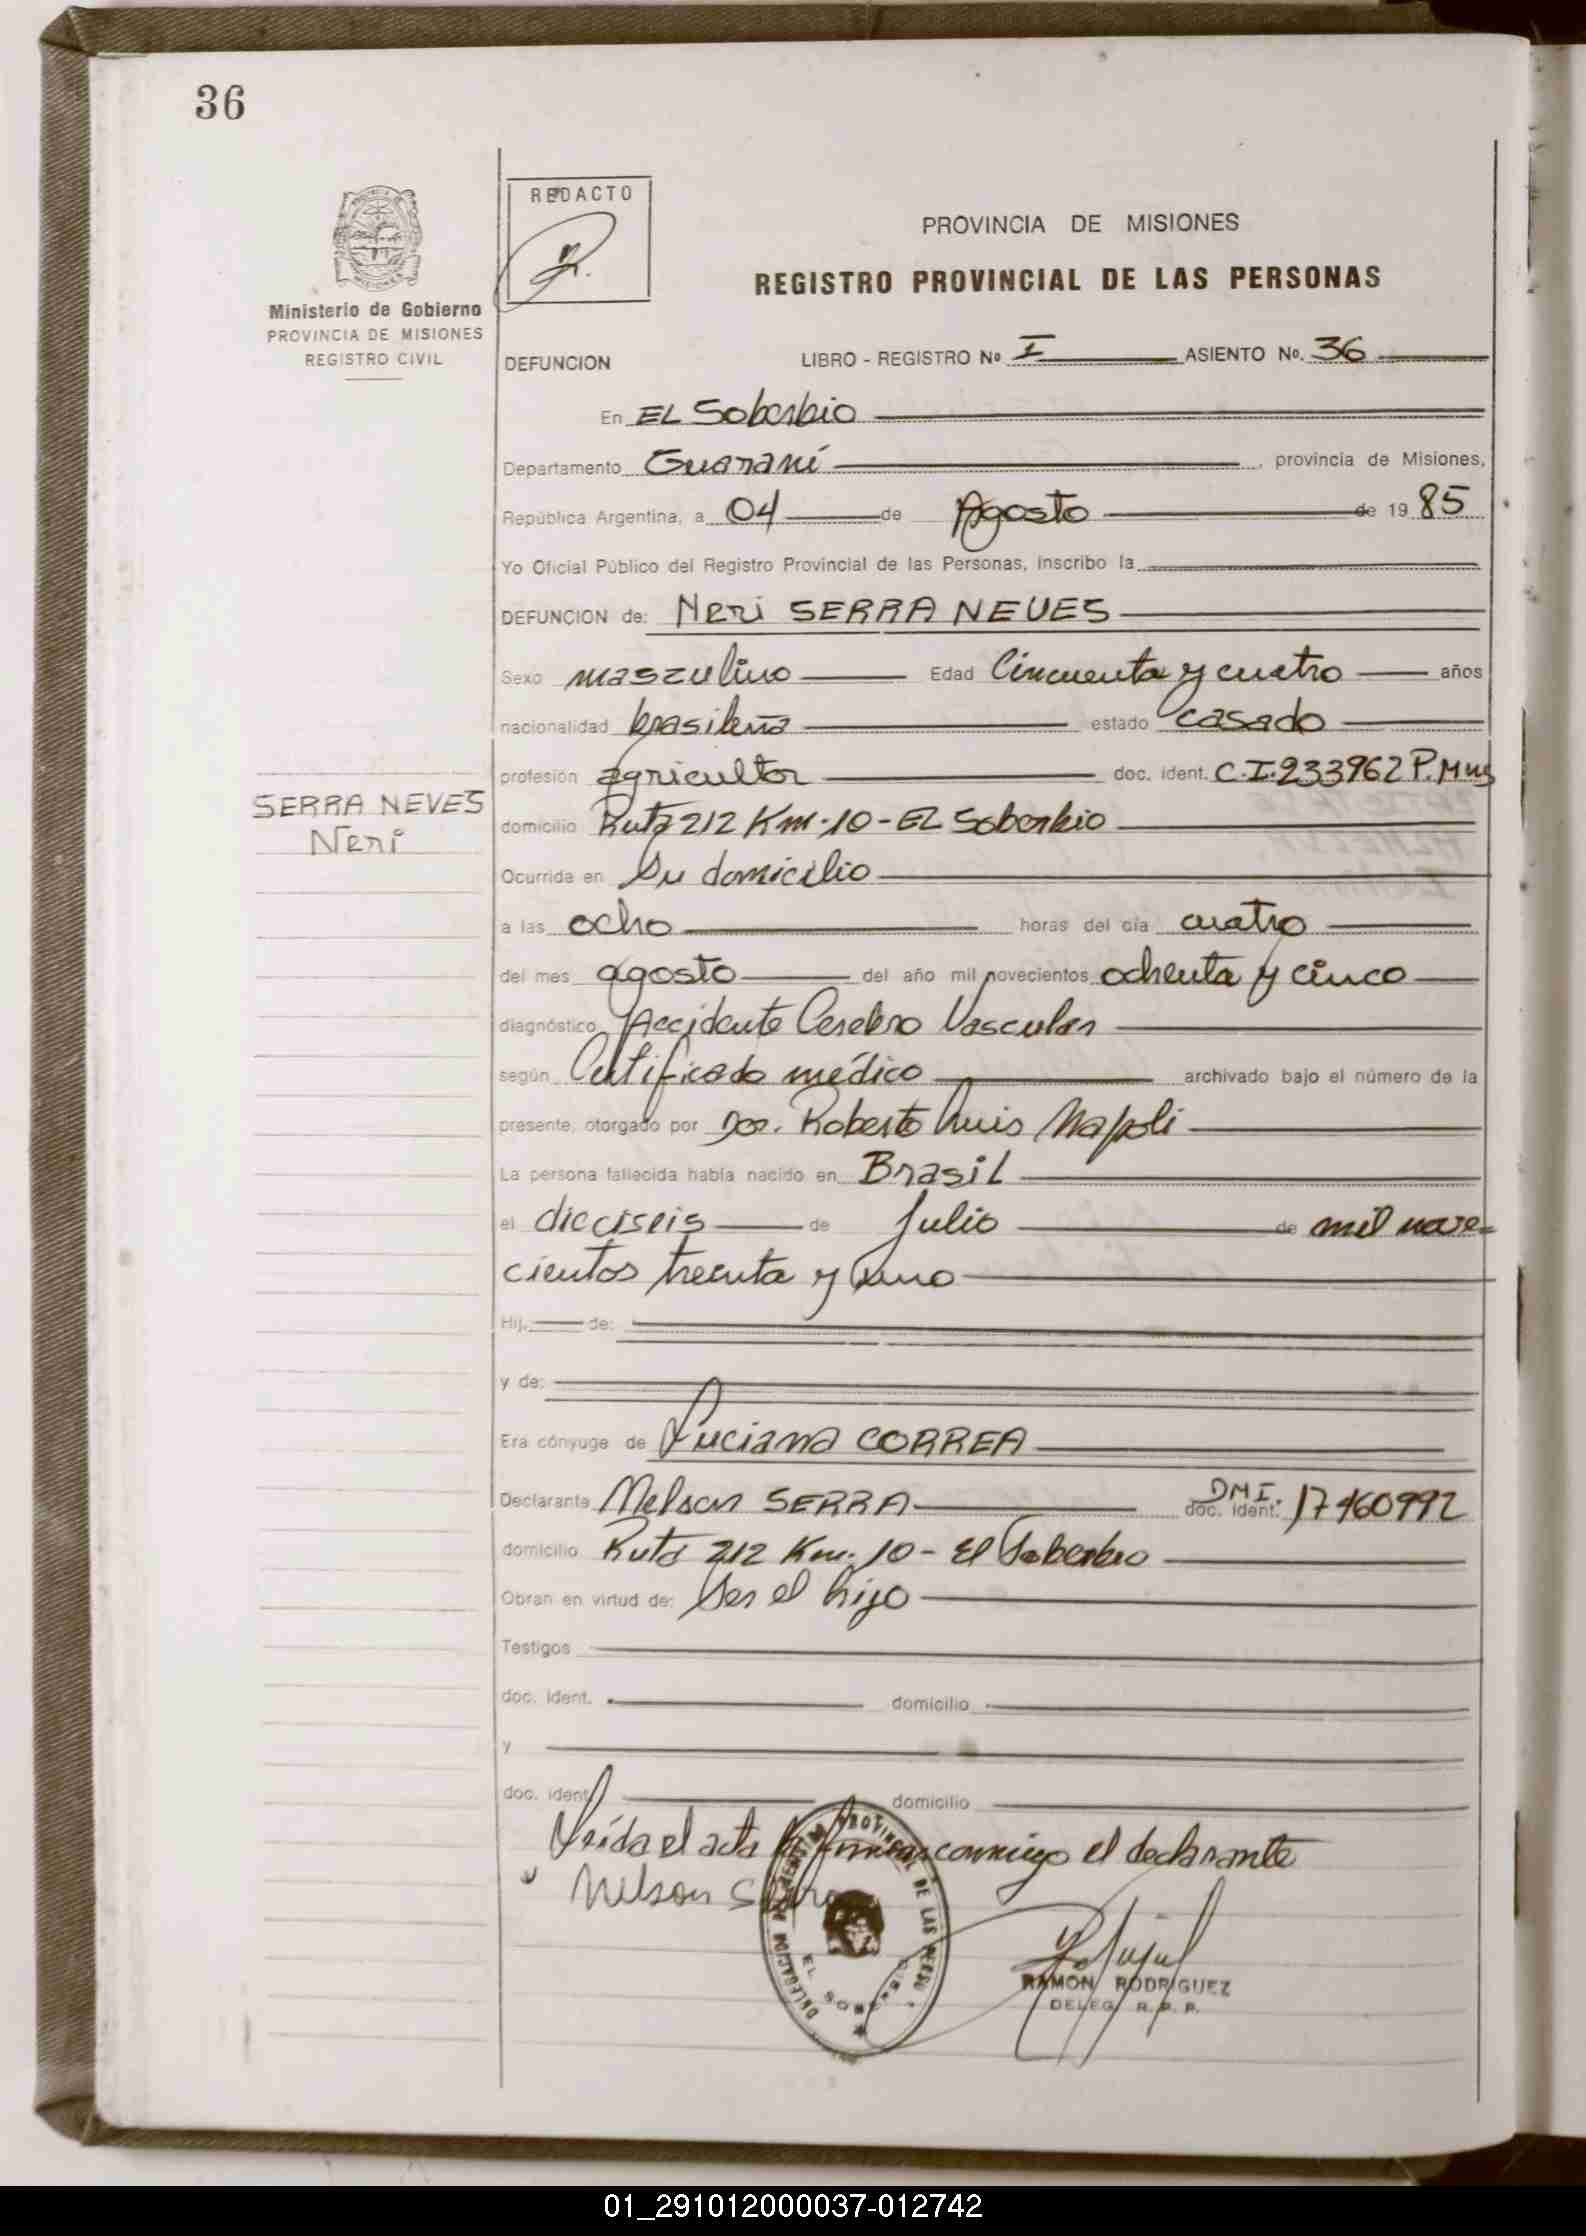 36
REDACTO
PROVINCIA DE MISIONES
REGISTRO PROVINCIAL DE LAS PERSONAS
Ministerio de Gobierno
PROVINCIA DE MISIONES
REGISTRO CIVIL
DEFUNCION LIBRO - REGISTRO Nº I ASIENTO No. 36
En EL Soberbio
Departamento Guaraní, provincia de Misiones,
República Argentina, a 04 de Agosto de 1985
Yo Oficial Público del Registro Provincial de las Personas, inscribo la
DEFUNCION de: Neri SERRA NEVES
Sexo masculino Edad Cincuenta y cuatro años
nacionalidad brasileña estado casado
profesión agricultor doc. ident. C.I. 233962 P. Mns
SERRA NEVES
Neri
domicilio Ruta 212 Km. 10 - EL Soberbio
Ocurrida en Su domicilio
a las ocho horas del día cuatro
del mes agosto del año mil novecientos ochenta y cinco
diagnóstico Accidente Cerebro Vascular
según Certificado médico archivado bajo el número de la
presente, otorgado por Dor. Roberto Luis Napoli
La persona fallecida había nacido en Brasil
el dieciseis de Julio de mil nove-
cientos treinta y uno
Hij de:
y de:
Era cónyuge de Luciana CORREA
Declarante Nelson SERRA doc. ident. DNI. 17460992
domicilio Ruta 212 Km. 10 - El Soberbio
Obran en virtud de: Ser el hijo
Testigos
doc. ident. domicilio
y
doc. ident. domicilio
Leída el acta la firma conmigo el declarante
Nelson Serra
DELEGACION REGISTRO PROVINCIAL DE LAS PERSO
EL SOBERBIO
RAMON RODRIGUEZ
DELEG. R. P. P.
01_291012000037-012742